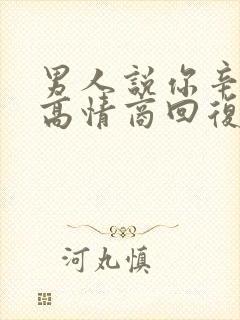 男人說你辛
高情商回復
河丸慎